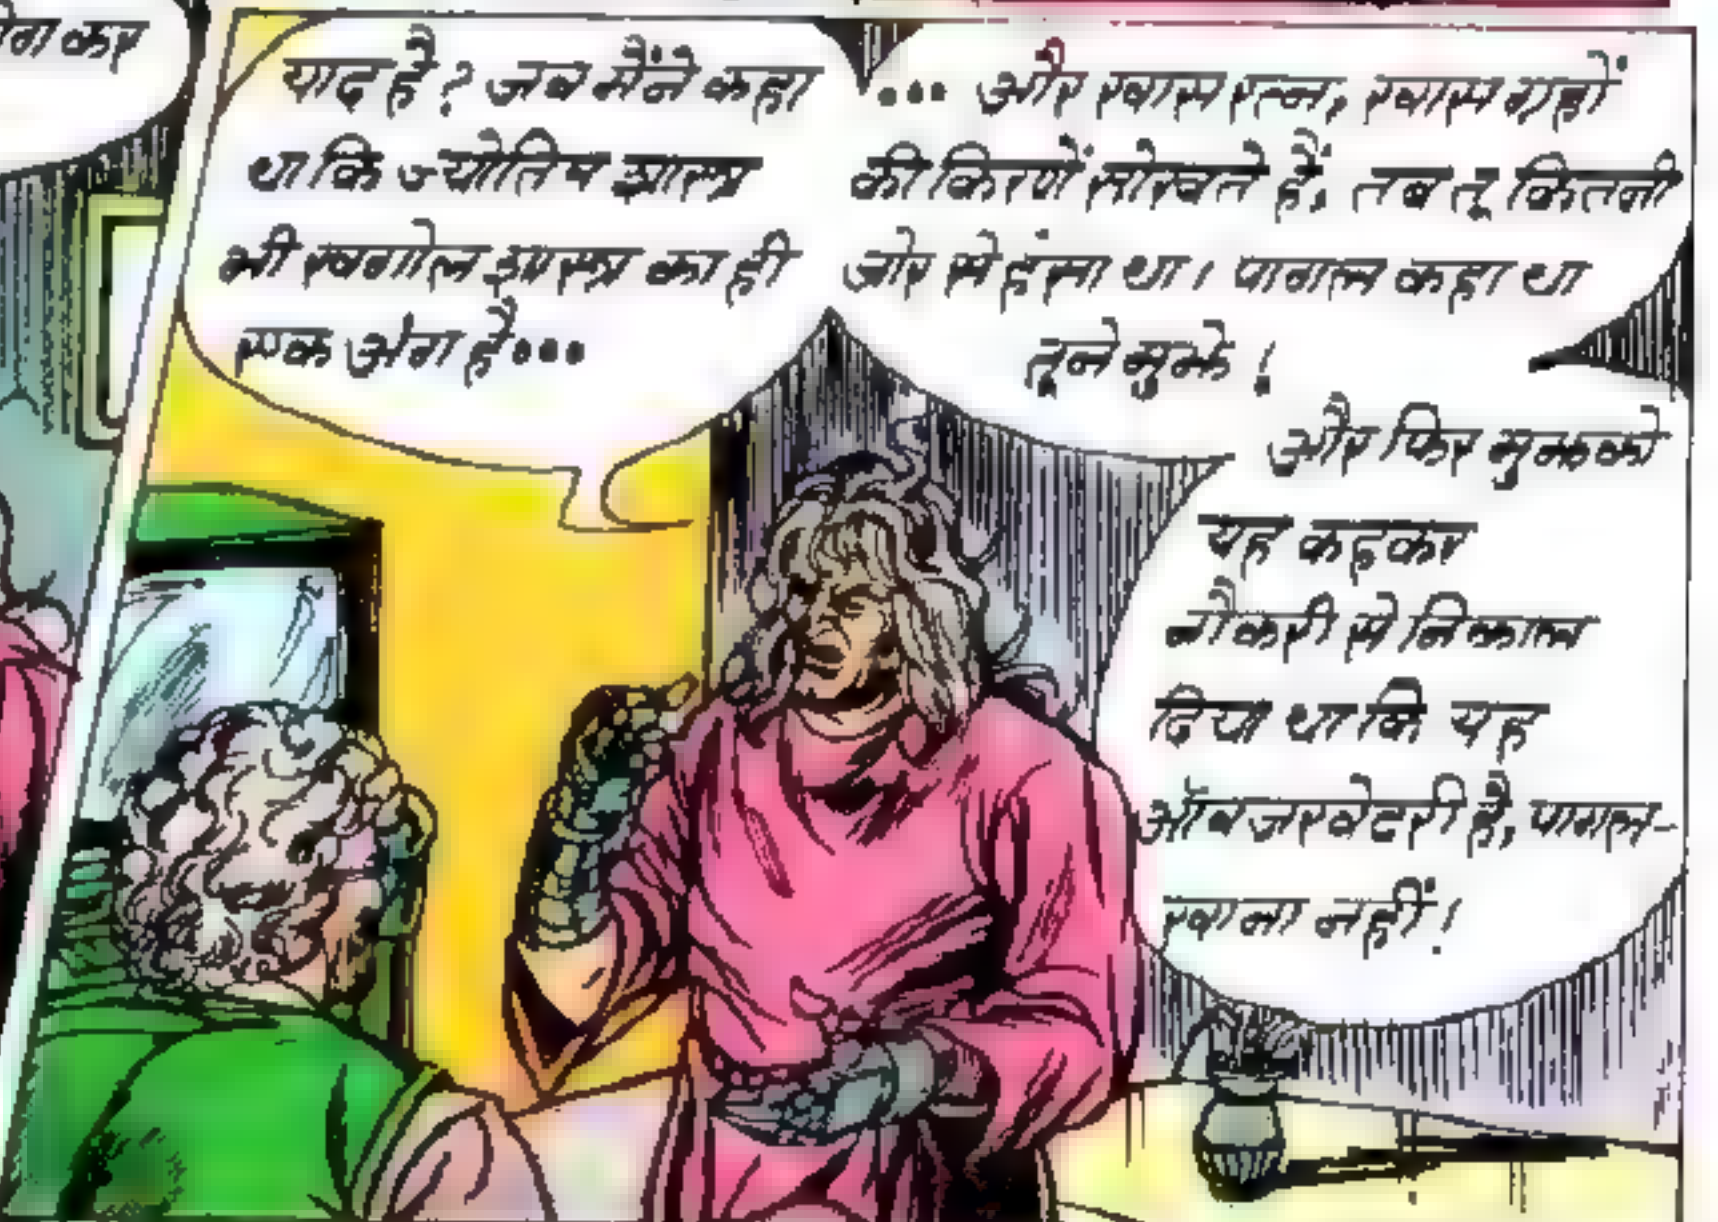 कर
याद है? जब मैंने कहा
था कि ज्योतिष शास्त्र
भी खगोल शास्त्र का ही
एक अंग है...
... और खास रत्न, खास ग्रहों
की किरणें सोखते हैं, तब तू कितनी
जोर से हंसा था। पागल कहा था
तूने मुझे!
और फिर मुझको
यह कहकर
नौकरी से निकाल
दिया था कि यह
ऑबजरवेटरी है, पागल-
खाना नहीं!